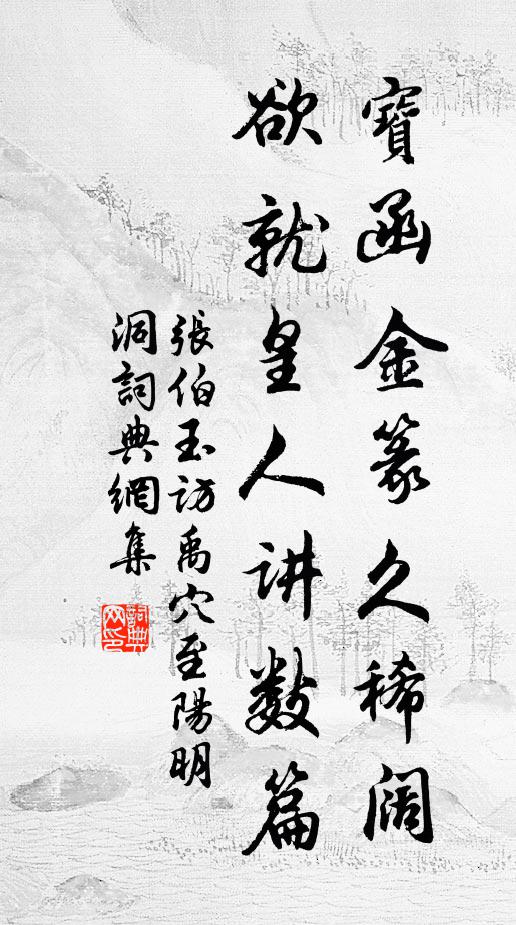 寶函金篆久稀阔
欲就皇人讲数篇
張伯玉访禹穴至陽明
洞詞典網集
詞典網印